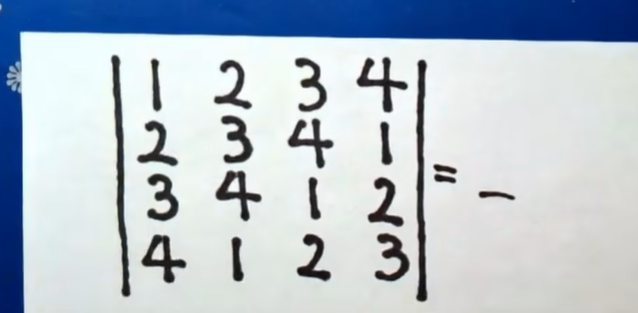 | 1 2 3 4 |
| 2 3 4 1 |
| 3 4 1 2 | = _
| 4 1 2 3 |